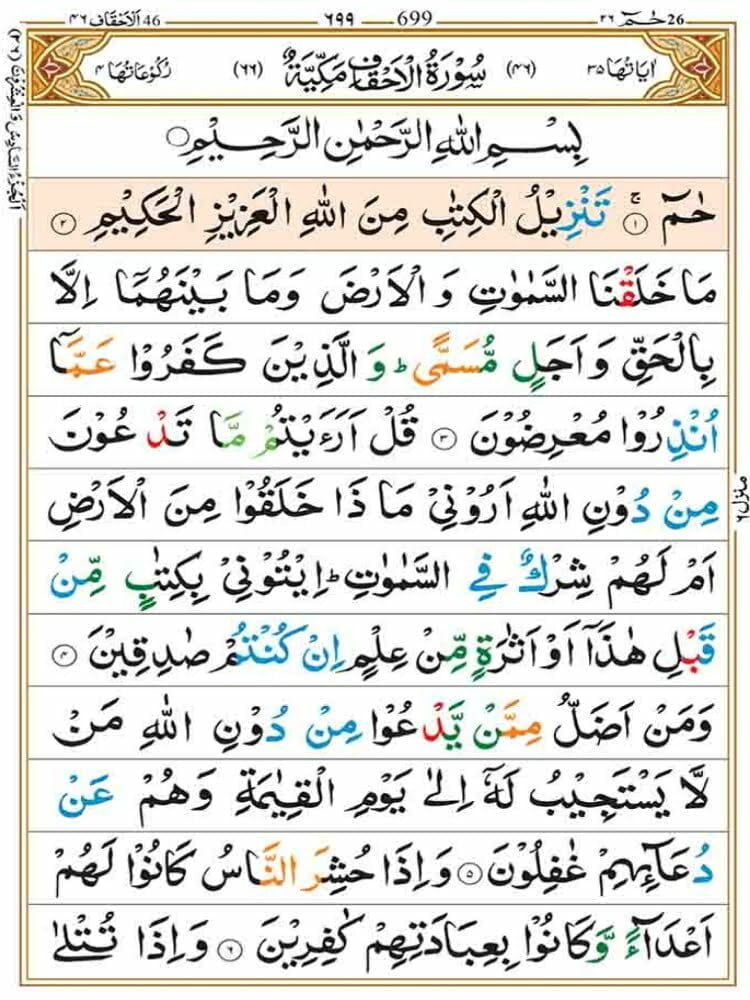 26 حٰمٓ ٢٦
699 ٦٩٩
46 الاحقاف ٤٦
اٰيَاتُهَا ٣٥ (٤٦) سُوْرَةُ الْاَحْقَافِ مَكِّيَّةٌ (٦٦) رُكُوْعَاتُهَا ٤
اَلْجُزْءُ السَّادِسُ وَالْعِشْرُوْنَ (٢٦)
بِسْمِ اللهِ الرَّحْمٰنِ الرَّحِيْمِ
حٰمٓ ۚ ١ تَنْزِيْلُ الْكِتٰبِ مِنَ اللهِ الْعَزِيْزِ الْحَكِيْمِ ٢
مَا خَلَقْنَا السَّمٰوٰتِ وَالْاَرْضَ وَمَا بَيْنَهُمَاۤ اِلَّا
بِالْحَقِّ وَاَجَلٍ مُّسَمًّىؕ وَالَّذِيْنَ كَفَرُوْا عَمَّاۤ
اُنْذِرُوْا مُعْرِضُوْنَ ٣ قُلْ اَرَءَيْتُمْ مَّا تَدْعُوْنَ
مِنْ دُوْنِ اللهِ اَرُوْنِيْ مَاذَا خَلَقُوْا مِنَ الْاَرْضِ
اَمْ لَهُمْ شِرْكٌ فِي السَّمٰوٰتِؕ اِيْتُوْنِيْ بِكِتٰبٍ مِّنْ
قَبْلِ هٰذَاۤ اَوْ اَثٰرَةٍ مِّنْ عِلْمٍ اِنْ كُنْتُمْ صٰدِقِيْنَ ٤
وَمَنْ اَضَلُّ مِمَّنْ يَّدْعُوْا مِنْ دُوْنِ اللهِ مَنْ
لَّا يَسْتَجِيْبُ لَهٗۤ اِلٰى يَوْمِ الْقِيٰمَةِ وَهُمْ عَنْ
دُعَآئِهِمْ غٰفِلُوْنَ ٥ وَاِذَا حُشِرَ النَّاسُ كَانُوْا لَهُمْ
اَعْدَآءً وَّكَانُوْا بِعِبَادَتِهِمْ كٰفِرِيْنَ ٦ وَاِذَا تُتْلٰى
منزل ٦